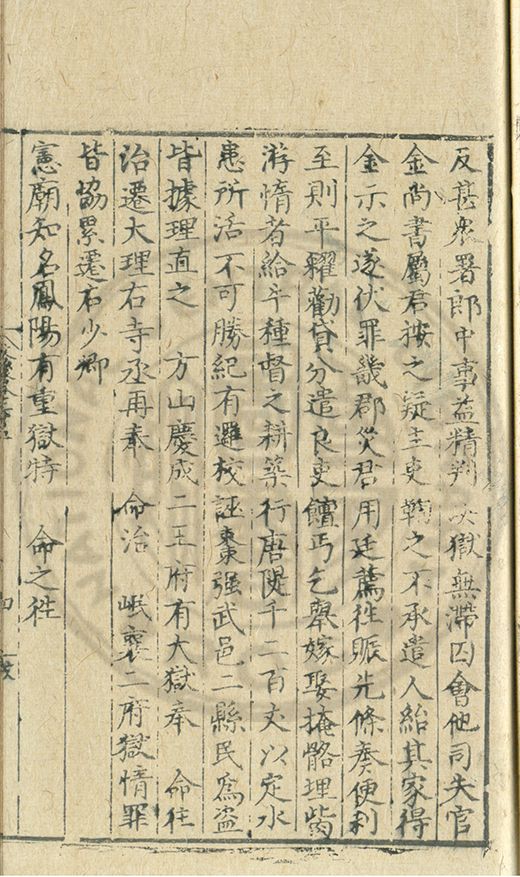 反甚眾署郎中事益精判決獄無滯囚會他司失官
金尚書屬君按之疑主吏鞫之不承遣人紿其家得
金示之遂伏罪畿郡災君用廷薦徃賑先條奏便利
至則平糶勸貸分遣良吏饘丐乞舉嫁娶掩骼理胔
游惰者給牛種督之耕築行唐隄千二百丈以定水
患所活不可勝紀有邏校誣棗强武邑二縣民為盜
皆據理直之 方山慶成二王府有大獄奉 命往
治遷大理右寺丞再奉 命治 岷襄二府獄情罪
皆協累遷右少卿
憲廟知名鳳陽有重獄特 命之徃